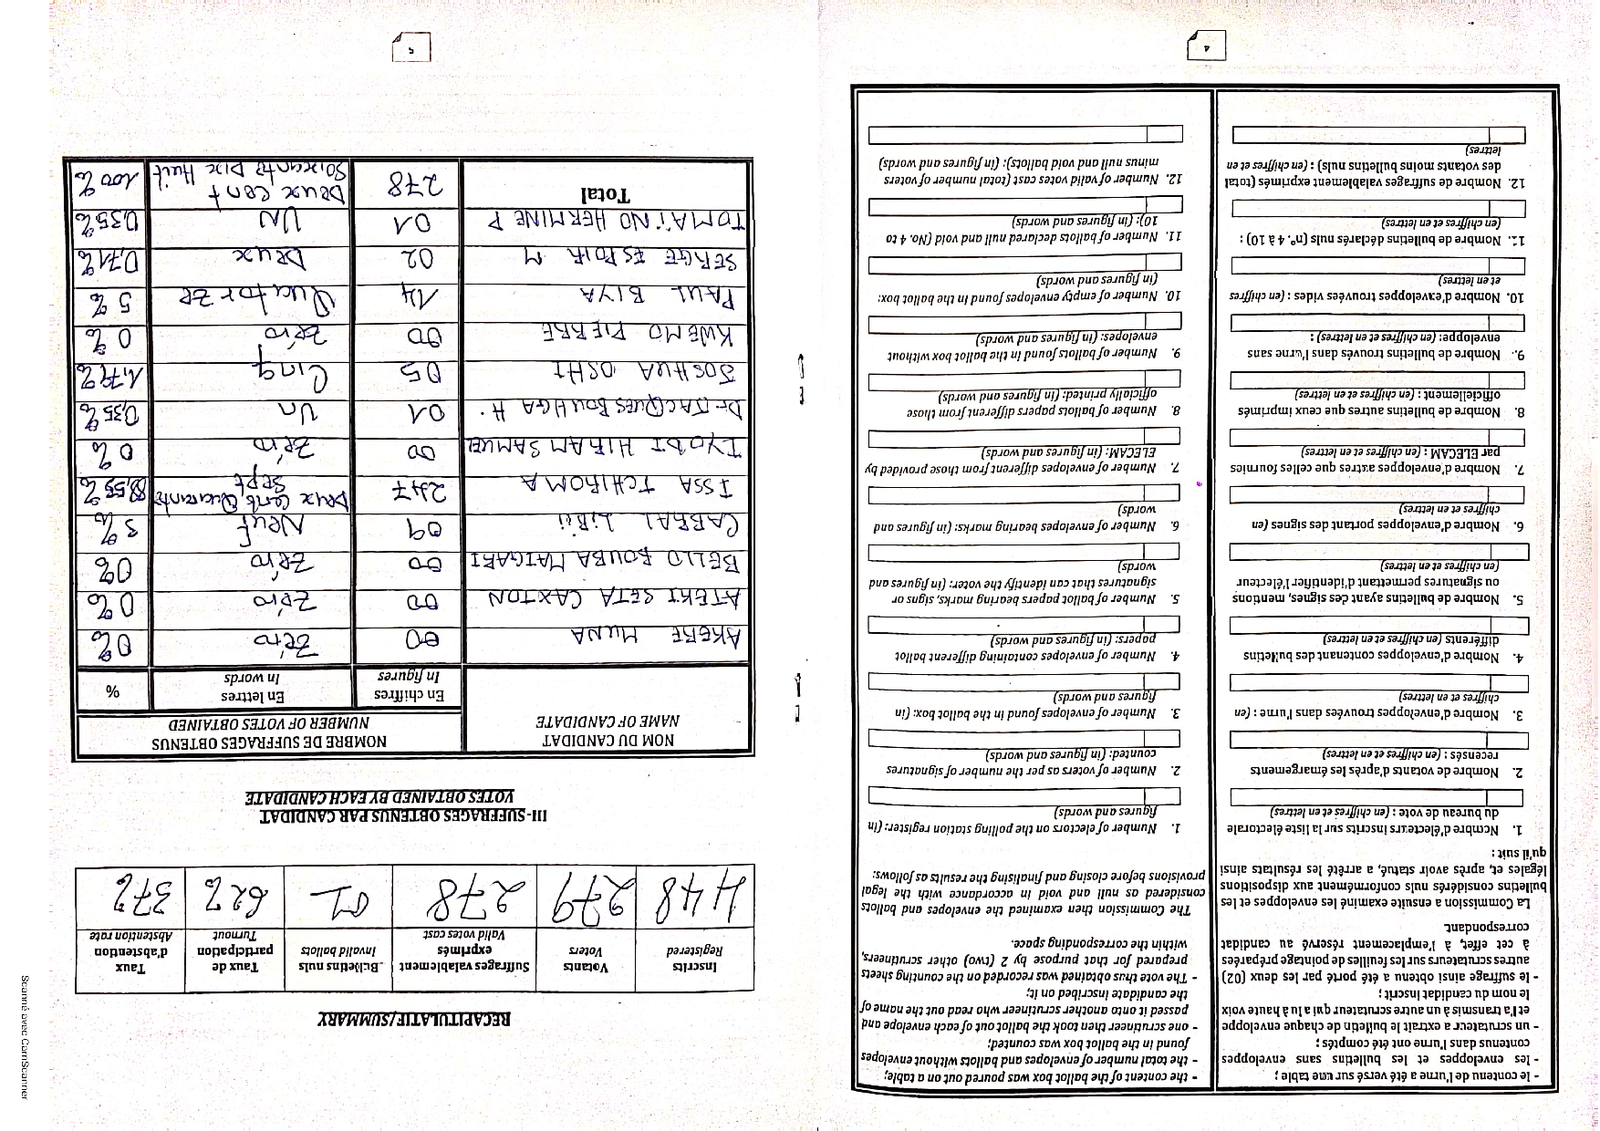 - le contenu de l'urne a été versé sur une table ;
- les enveloppes et les bulletins sans enveloppes
contenus dans l'urne ont été comptés ;
- un scrutateur a extrait le bulletin de chaque enveloppe
et l'a transmis à un autre scrutateur qui a lu à haute voix
le nom du candidat inscrit ;
- le suffrage ainsi obtenu a été porté par les deux (02)
autres scrutateurs sur les feuilles de pointage préparées
à cet effet, à l'emplacement réservé au candidat
correspondant.
La Commission a ensuite examiné les enveloppes et les
bulletins considérés nuls conformément aux dispositions
légales et, après avoir statué, a arrêté les résultats ainsi
qu'il suit :
1. Nombre d'électeurs inscrits sur la liste électorale
du bureau de vote : (en chiffres et en lettres)
2. Nombre de votants d'après les émargements
recensés : (en chiffres et en lettres)
3. Nombre d'enveloppes trouvées dans l'urne : (en
chiffres et en lettres)
4. Nombre d'enveloppes contenant des bulletins
différents (en chiffres et en lettres)
5. Nombre de bulletins ayant des signes, mentions
ou signatures permettant d'identifier l'électeur
(en chiffres et en lettres)
6. Nombre d'enveloppes portant des signes (en
chiffres et en lettres)
7. Nombre d'enveloppes autres que celles fournies
par ELECAM : (en chiffres et en lettres)
8. Nombre de bulletins autres que ceux imprimés
officiellement : (en chiffres et en lettres)
9. Nombre de bulletins trouvés dans l'urne sans
enveloppe: (en chiffres et en lettres) :
10. Nombre d'enveloppes trouvées vides : (en chiffres
et en lettres)
11. Nombre de bulletins déclarés nuls (n°. 4 à 10) :
(en chiffres et en lettres)
12. Nombre de suffrages valablement exprimés (total
des votants moins bulletins nuls) : (en chiffres et en
lettres)
- the content of the ballot box was poured out on a table;
- the total number of envelopes and ballots without envelopes
found in the ballot box was counted;
- one scrutineer then took the ballot out of each envelope and
passed it onto another scrutineer who read out the name of
the candidate inscribed on it;
- The vote thus obtained was recorded on the counting sheets
prepared for that purpose by 2 (two) other scrutineers,
within the corresponding space.
The Commission then examined the envelopes and ballots
considered as null and void in accordance with the legal
provisions before closing and finalising the results as follows:
1. Number of electors on the polling station register: (in
figures and words)
2. Number of voters as per the number of signatures
counted: (in figures and words)
3. Number of envelopes found in the ballot box: (in
figures and words)
4. Number of envelopes containing different ballot
papers: (in figures and words)
5. Number of ballot papers bearing marks, signs or
signatures that can identify the voter: (in figures and
words)
6. Number of envelopes bearing marks: (in figures and
words)
7. Number of envelopes different from those provided by
ELECAM: (in figures and words)
8. Number of ballots papers different from those
officially printed: (in figures and words)
9. Number of ballots found in the ballot box without
envelopes: (in figures and words)
10. Number of empty envelopes found in the ballot box:
(in figures and words)
11. Number of ballots declared null and void (No. 4 to
10): (in figures and words)
12. Number of valid votes cast (total number of voters
minus null and void ballots): (in figures and words)
4
RECAPITULATIF/SUMMARY
Inscrits Registered | Votants Voters | Suffrages valablement exprimés Valid votes cast | Bulletins nuls Invalid ballots | Taux de participation Turnout | Taux d'abstention Abstention rate
448 279 278 01 62% 37%
III- SUFFRAGES OBTENUS PAR CANDIDAT
VOTES OBTAINED BY EACH CANDIDATE
NOM DU CANDIDAT NOMBRE DE SUFFRAGES OBTENUS
NAME OF CANDIDATE NUMBER OF VOTES OBTAINED
En chiffres En lettres %
In figures In words
AKERE MUNA 00 Zéro 0%
ATEKI SETA CAXTON 00 Zéro 0%
BELLO BOUBA MAIGARI 00 Zéro 0%
CABRAL LiBii 09 Neuf 3%
ISSA TCHIROMA 247 Deux Cent Quarante Sept 88,55%
IYODI HIRAM SAMUEL 00 Zéro 0%
Dr JACQUES BOUHGA H. 01 Un 0,35%
JOSHUA OSHI 05 Cinq 1,79%
KWEMO PIERRE 00 Zéro 0%
PAUL BIYA 14 Quatorze 5%
SERGE ESPOIR M 02 Deux 0,71%
TOMAÏNO HERMINE P 01 UN 0,35%
Total 278 Deux Cent Soixante Dix Huit 100%
5
Scanné avec CamScanner